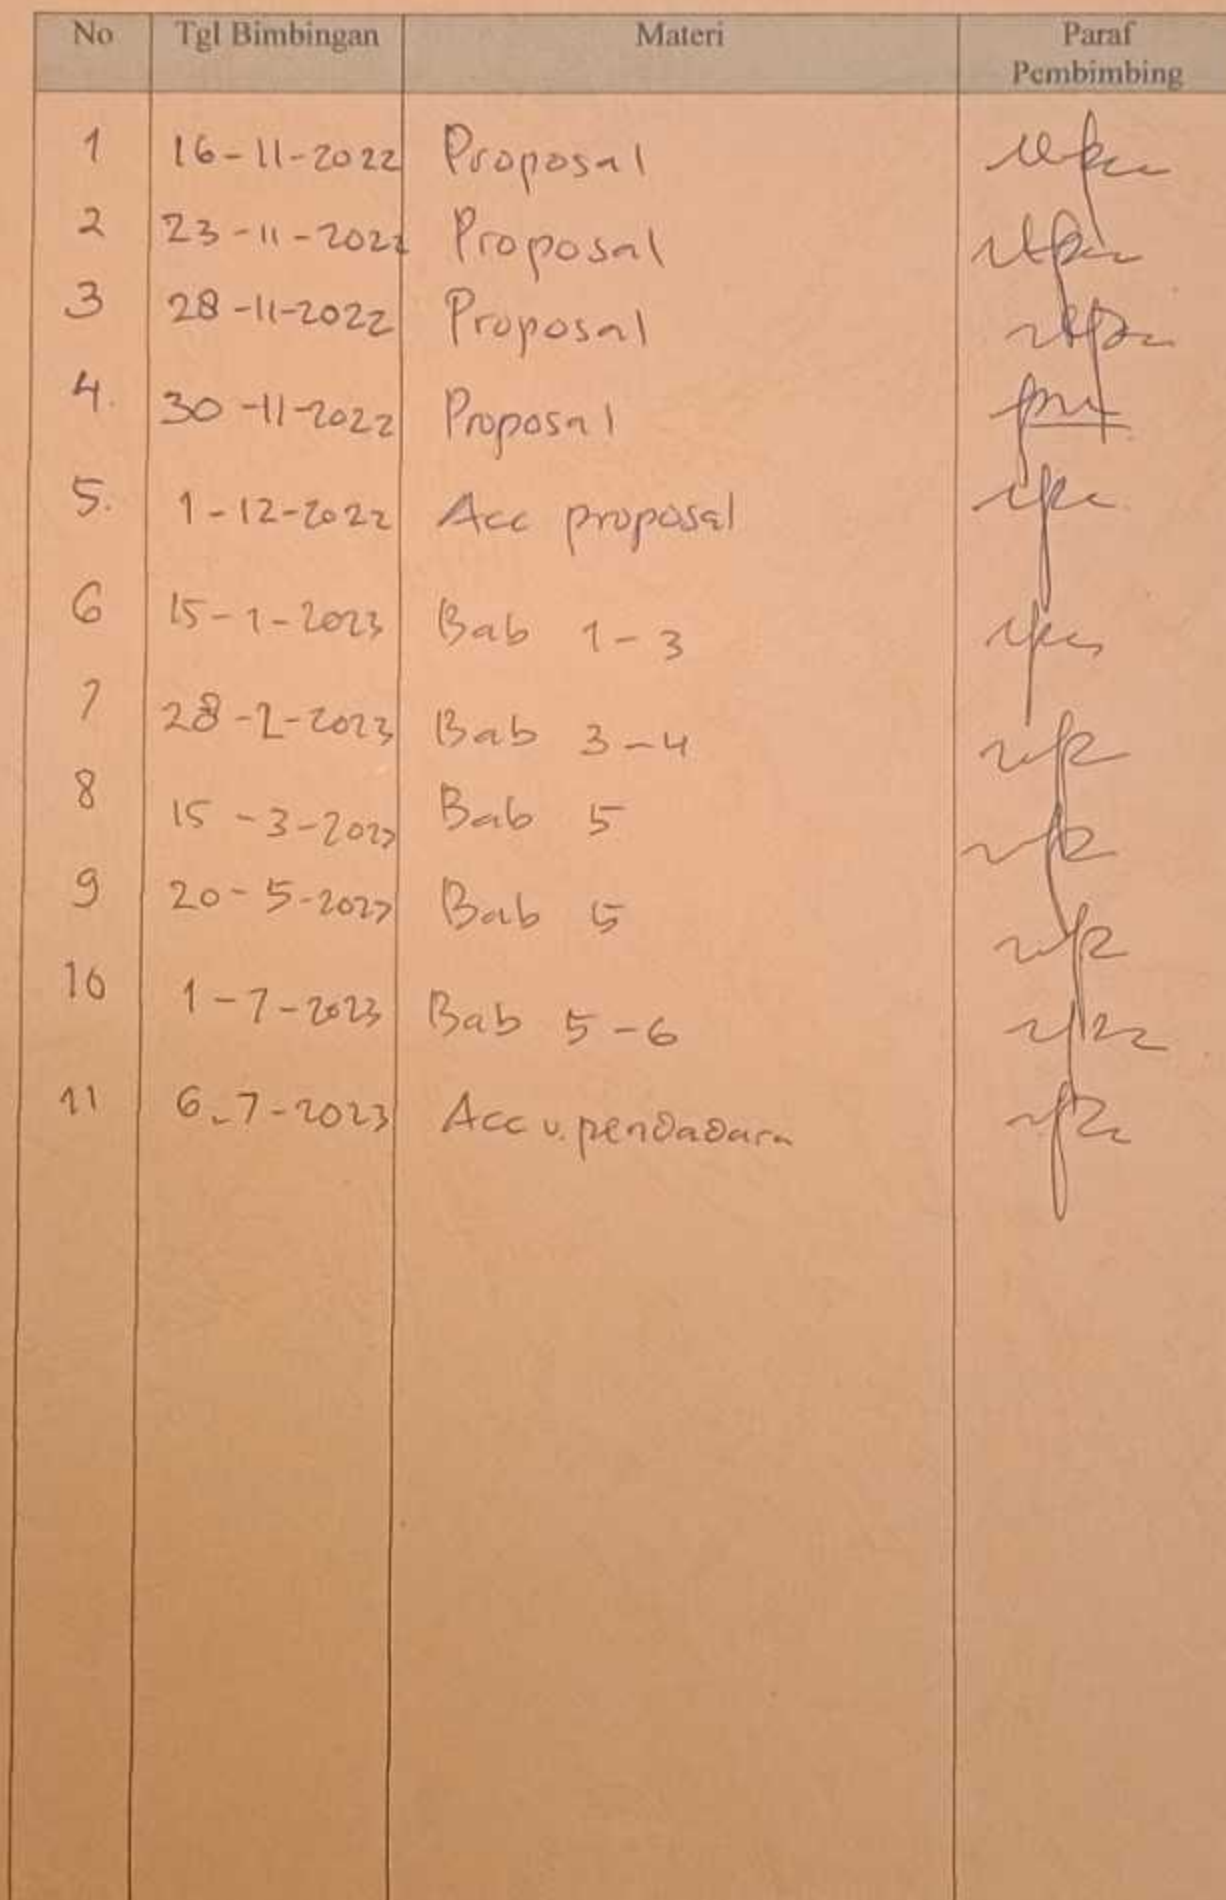 No Tgl Bimbingan Materi Paraf
Pembimbing
1 16-11-2022 Proposal
2 23-11-2022 Proposal
3 28-11-2022 Proposal
4. 30-11-2022 Proposal
5. 1-12-2022 Acc proposal
6 15-1-2023 Bab 1-3
7 28-2-2023 Bab 3-4
8 15-3-2023 Bab 5
9 20-5-2023 Bab 5
10 1-7-2023 Bab 5-6
11 6-7-2023 Acc u. pendadaran